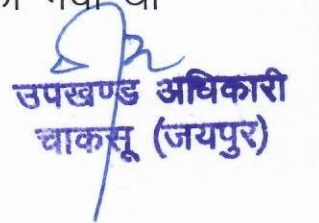 गया था
उपखण्ड अधिकारी
चाकसू (जयपुर)